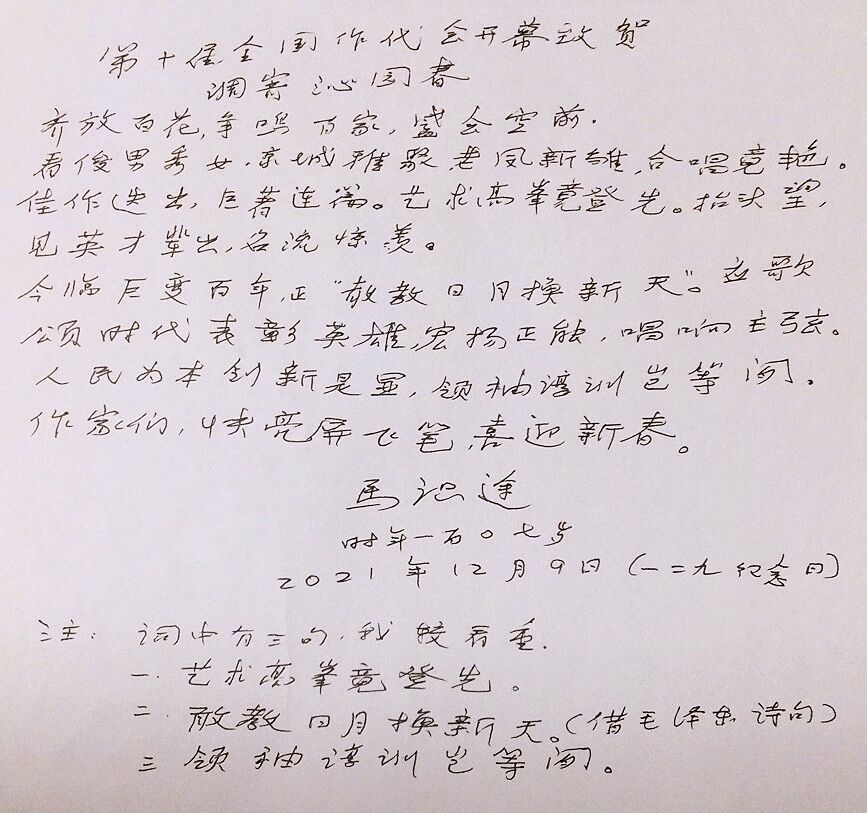 第十届全国作代会开幕致贺
调寄沁园春
齐放百花,争鸣百家,盛会空前.
看俊男秀女,京城雅聚,老凤新雏,合唱竟艳。
佳作迭出,巨著连篇。艺术高峯竟登先。抬头望,
见英才辈出,名流惊羡。
今临巨变百年,正“敢教日月换新天”。应歌
颂时代,表彰英雄,宏扬正能,唱响主弦。
人民为本创新是显,领袖谆训岂等闲。
作家们,快亮屏飞笔,喜迎新春。
马识途
时年一百0七岁
2021年12月9日(一二九纪念日)
注:词中有三句,我较看重.
一.艺术高峯竟登先。
二.敢教日月换新天。(借毛泽东诗句)
三 领袖谆训岂等闲。